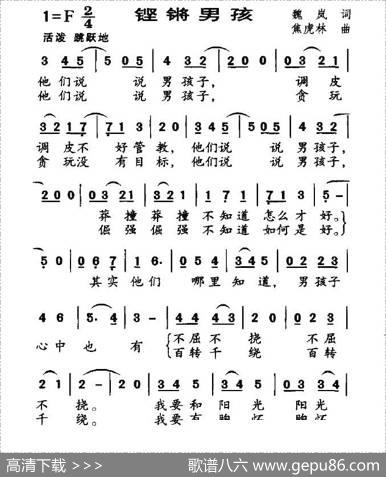 1=F 2/4 铿锵男孩 魏岚 词
活泼 跳跃地 焦虎林 曲
3 45 | 505 | 0432 | 200 | 0345 |
他们说 说男孩子, 调皮
他们说 说男孩子, 贪玩
3217 | 7 0213 | 20 | 345 | 505 | 0432 |
调皮不 好管教,他们说 说男孩子,
贪玩没 有目标,他们说 说男孩子,
200 | 0321 | 321 | 171 | 713 | 5- |
莽撞莽撞不知道怎么才好。
倔强倔强不知道如何是好。
50 | 067 | 16· | 054 | 345 | 0234 |
其实他们 哪里知道,男孩子
46 | 5·4 | 3- | 043 | 432 | 043 |
心中也有 不屈不挠 不屈
百转千绕 百转
21 | 2- | 20 | 345 | 345 | 0334 |
不挠。 我要和阳光 阳光
千绕。 我要有胸怀 胸怀
高清下载 >>> 歌谱八六 www.gepu86.com